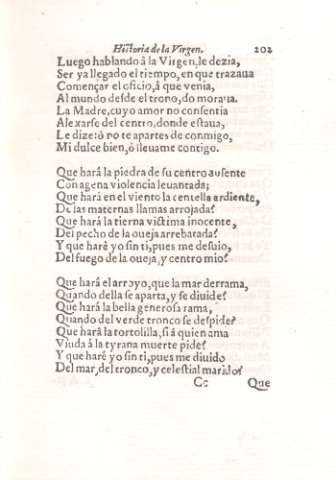 Historia de la Virgen. 202
Luego hablando â la Virgen, le dezia,
Ser ya llegado el tiempo, en que trazaua
Començar el oficio, á que venia,
Al mundo desde el trono, do moraua.
La Madre, cuyo amor no consentia
Alexarse del centro, donde estaua,
Le dize: ò no te apartes de conmigo,
Mi dulce bien, ó lleuame contigo.
Que hará la piedra de su centro ausente
Con agena violencia leuantada;
Que hará en el viento la centella ardiente,
De las maternas llamas arrojada?
Que hará la tierna victima inocente,
Del pecho de la oueja arrebatada?
Y que harè yo sin ti, pues me desuio,
Del fuego de la oueja, y centro mio?
Que hará el arroyo, que la mar derrama,
Quando della se aparta, y se diuide?
Que hará la bella generosa rama,
Quando del verde tronco se despide?
Que hará la tortolilla, si á quien ama
Viuda á la tyrana muerte pide?
Y que haré yo sin ti, pues me diuido
Del mar, del tronco, y celestial marido?
Cc Que